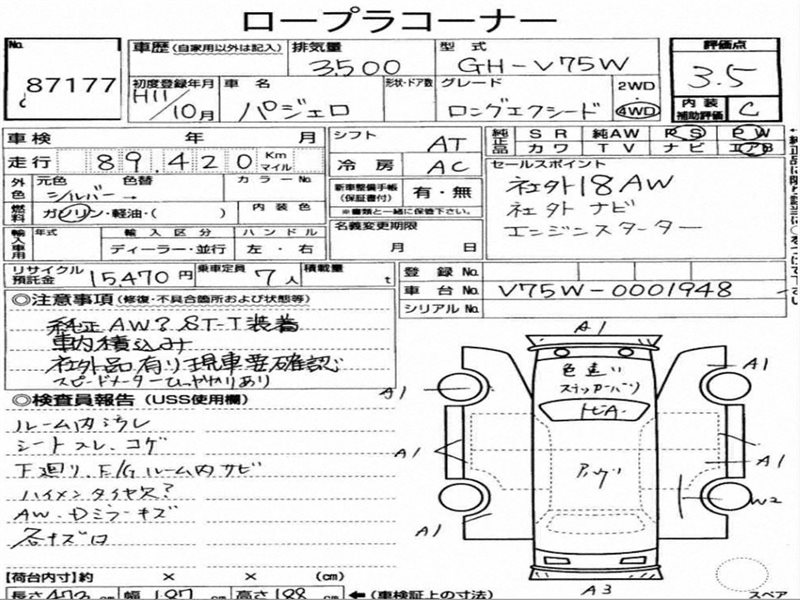 ロープラコーナー
No. 87177
車歴 (自家用以外は記入) 排気量 3500 型式 GH-V75W 評価点 3.5
初度登録年月 H11/10月 車名 パジェロ 形状・ドア数 グレード ロングエクシード 2WD 4WD 内装補助評価 C
車検 年 月 シフト AT 純正品 SR 純AW PS PW
カワ TV ナビ エアB
走行 89,420 Km マイル 冷房 AC セールスポイント
外色 元色 シルバー 色替 → カラーNo. 新車整備手帳 (保証書付) 有・無 社外18AW
燃料 ガソリン・軽油・( ) 内装色 ※書類と一緒に保管下さい。 社外ナビ
輸入車用 年式 輸入区分 ディーラー・並行 ハンドル 左・右 名義変更期限 月 日 エンジンスターター
リサイクル預託金 15,470円 乗車定員 7人 積載量 t 登録No.
車台No. V75W-0001948
シリアルNo.
◎注意事項 (修復・不具合箇所および状態等)
純正AW? ST-T装着
車内積込み
社外品有り現車要確認
スピードメーター
◎検査員報告 (USS使用欄)
ルーム内ヨゴレ
シートスレ、コゲ
下廻り、E/Gルーム内サビ
ハイメンタイヤ欠?
AW・Dミラーキズ
各キズ凹
A1
A1
A1
A1
A1
A1
W2
A3
色違い
トビA
スペア
【荷台内寸】約 × × (cm)
長さ 473 cm 幅 187 cm 高さ 188 cm ←(車検証上の寸法)